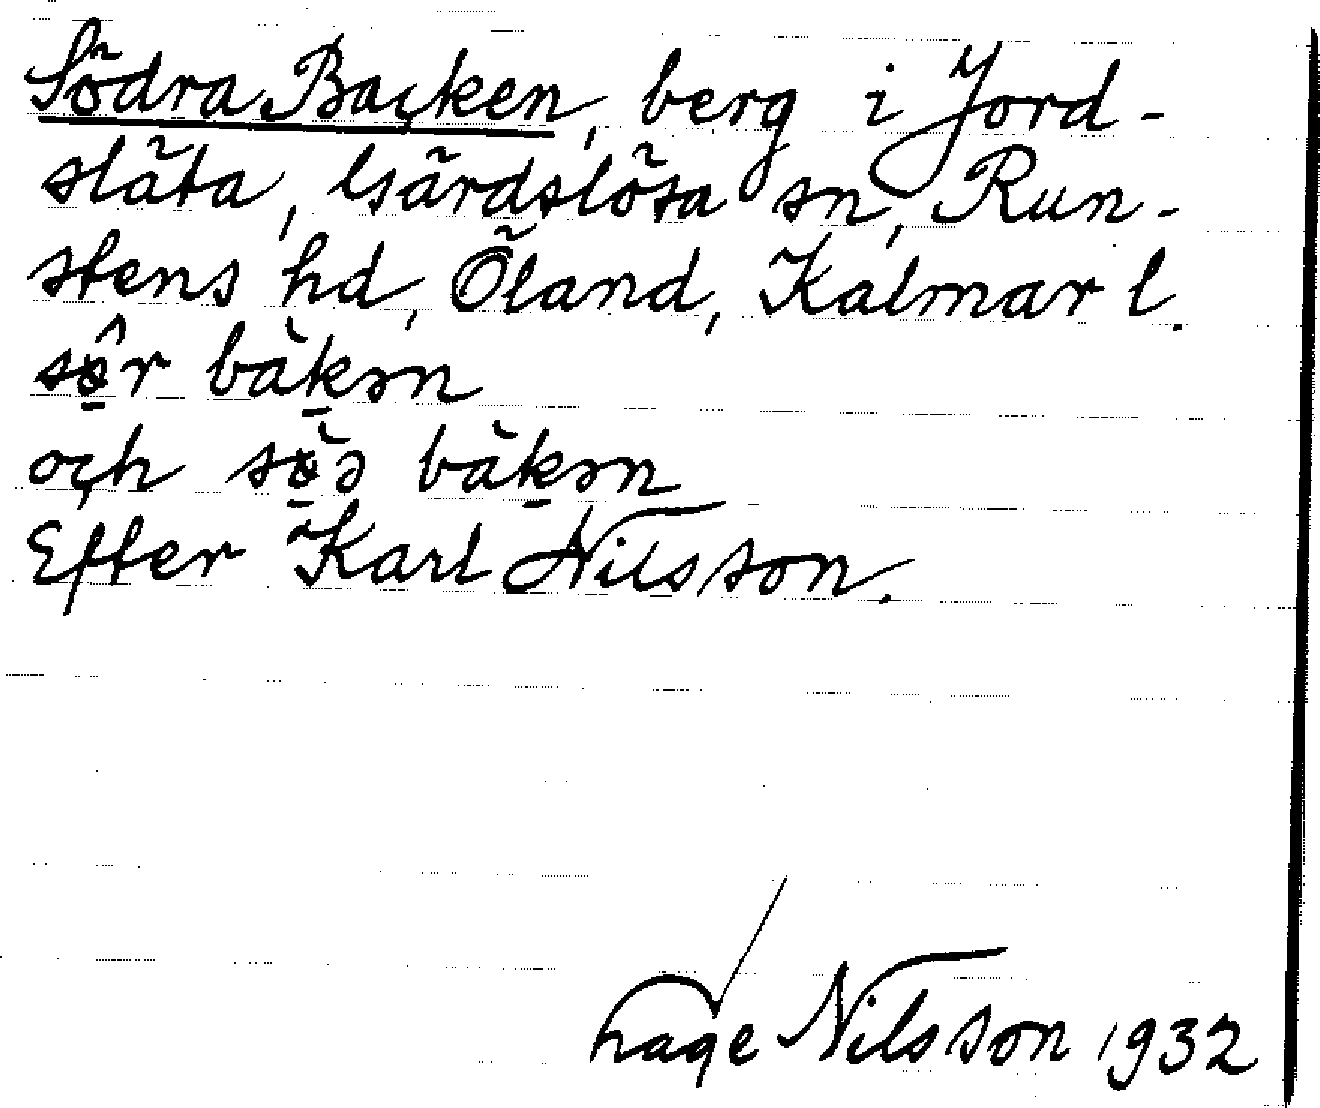 Södra Backen, berg i Jord-
släta, Gärdslösa sn, Run-
stens hd, Öland, Kalmar l.
sö̱̂r bàḵən
och sö̱̀ə bàḵən
Efter Karl Nilsson.
Hage Nilsson 1932